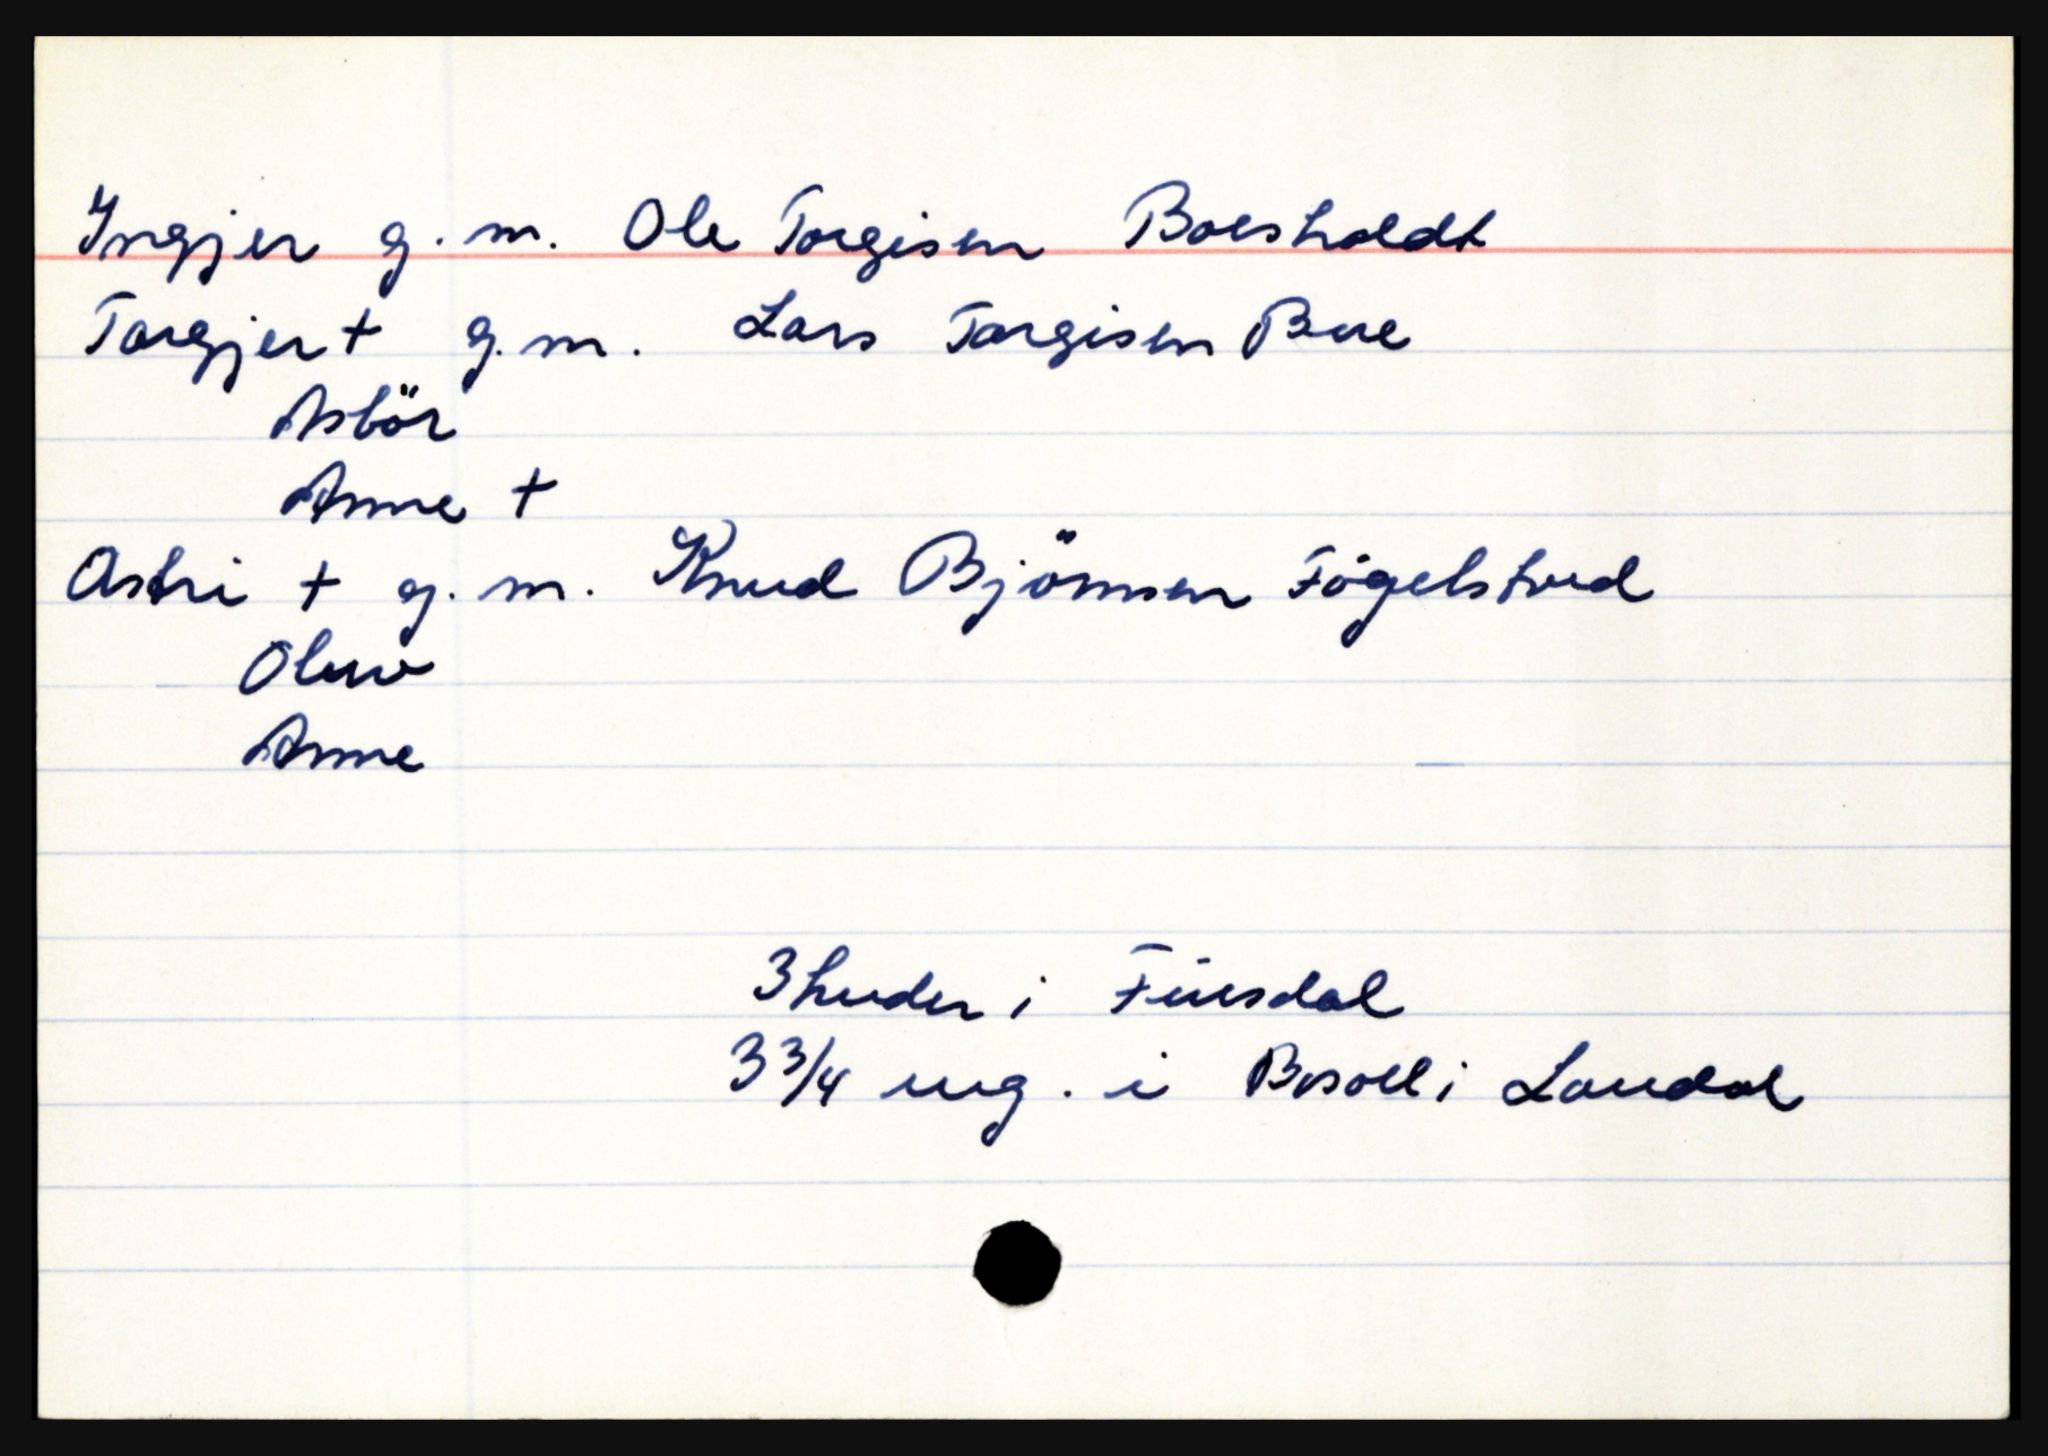 Ingjer g. m. Ole Torgisen Boesholdt
Torgjer + g. m. Lars Torgisen Bue
Asbör
Anne +
Astri + g. m. Knud Björnsen Fögelstved
Oluv
Anne
3 huder i Fiirsdal
3 3/4 ug. i Bosoel i Laudal